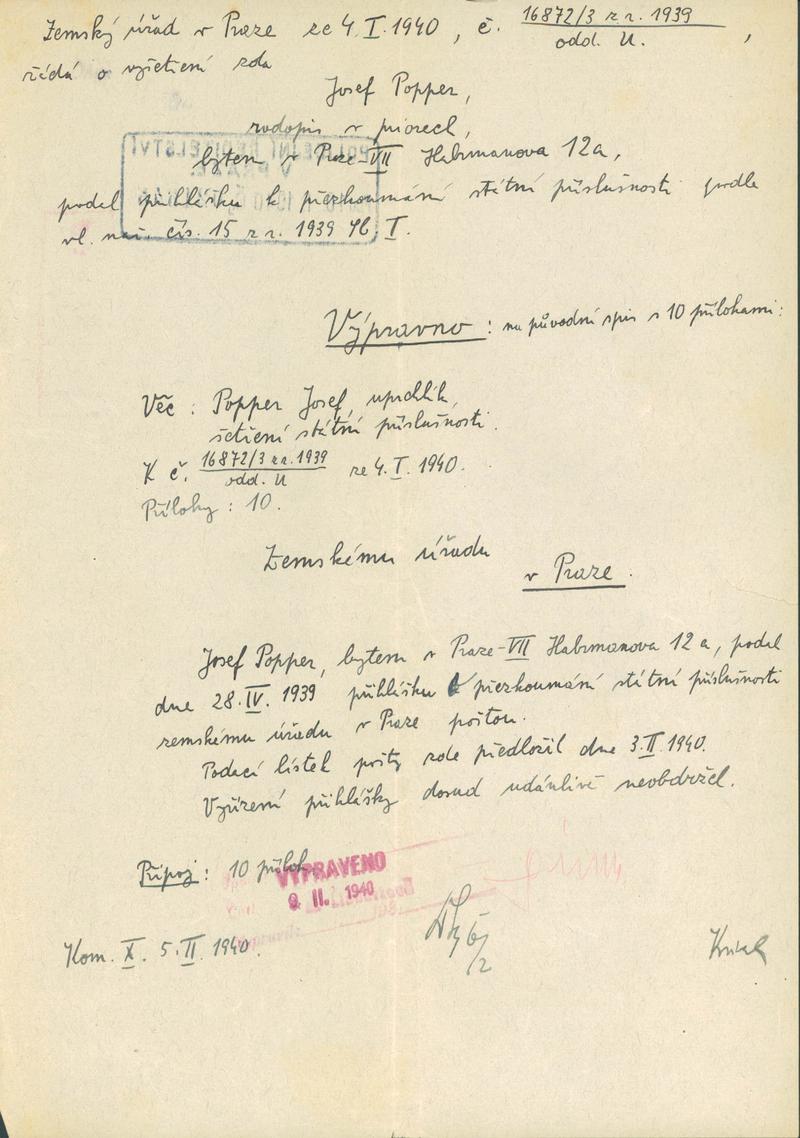 Zemský úřad v Praze ze 4. I. 1940, č. 16872/3 z r. 1939 odd. U.,
žádá o vyšetření zda
Josef Popper,
rodopis v přiorech,
bytem v Praze-VII Habrmanova 12a,
podal přihlášku k přezkoumání státní příslušnosti podle
vl. nař. čís. 15 z r. 1939 Sb I.
Výpravno: na původní spis s 10 přílohami:
Věc: Popper Josef, uprchlík,
šetření státní příslušnosti.
K č. 16872/3 z r. 1939 odd. U ze 4. I. 1940.
Přílohy: 10.
Zemskému úřadu
v Praze.
Josef Popper, bytem v Praze-VII Habrmanova 12 a, podal
dne 28. IV. 1939 přihlášku k přezkoumání státní příslušnosti
zemskému úřadu v Praze poštou.
Podací lístek pošty zde předložil dne 3. II. 1940.
Vyřízení přihlášky dosud údánlivě neobdržel.
Připoj: 10 příloh
VYPRAVENO
9. II. 1940
Kom. X. 5. II. 1940.